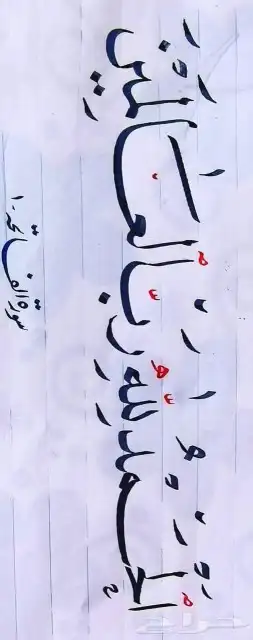 الْحَمْدُ لِلَّهِ رَبِّ الْعَالَمِينَ
سورة الفاتحة - ١
حراج